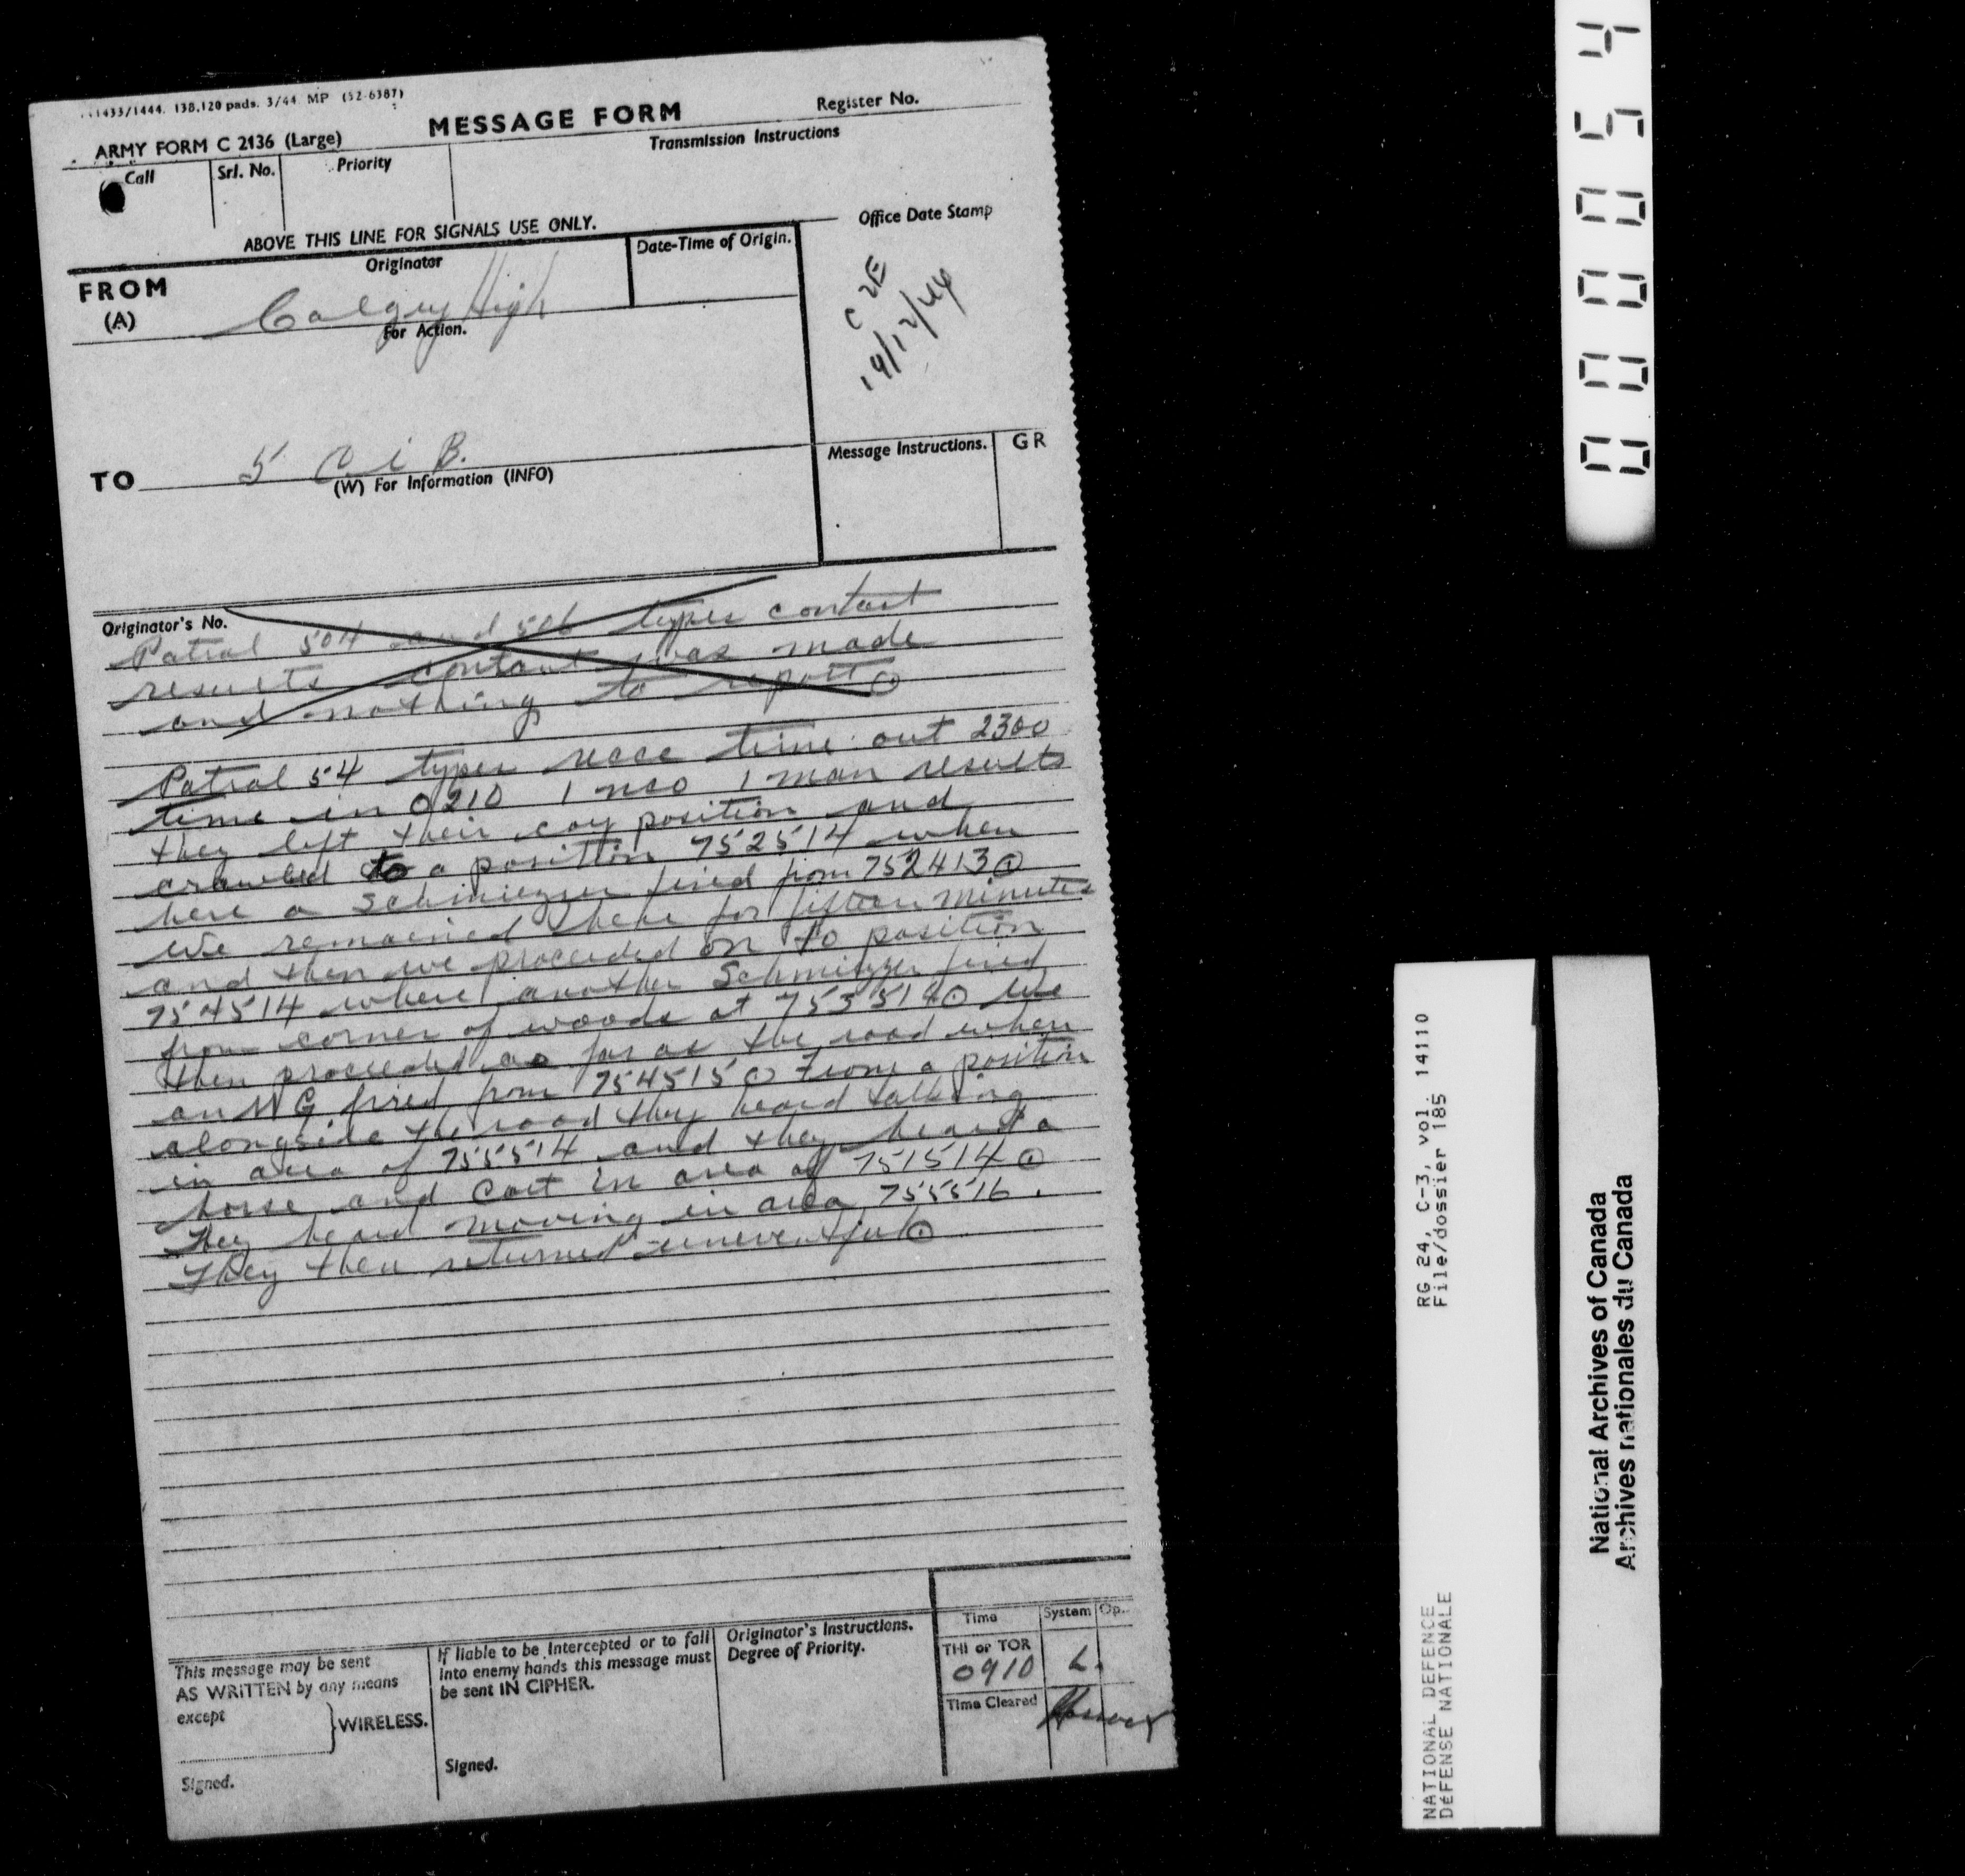 1433/1444. 138,120 pads. 3/44 MP (52-6387)
ARMY FORM C 2136 (Large)
MESSAGE FORM
Register No.
Call
Srl. No.
Priority
Transmission Instructions
ABOVE THIS LINE FOR SIGNALS USE ONLY.
Office Date Stamp
FROM
(A)
Originator
Date-Time of Origin.
Calgary High
For Action.
14/12/44
TO
5 C i B.
(W) For Information (INFO)
Message Instructions.
GR
Originator's No.
Patrol 504 and 506 types contact
results contact was made
and nothing to report
Patrol 54 types recce time out 2300
time in 0210 1 nco 1 man results
they left their coy position and
crawled to a position 752514 when
here a Schmiezzer fired from 752413
We remained there for fifteen minutes
and then we proceeded on to position
754514 where another Schmiezzer fired
from corner of woods at We
then proceeded as far as the road when
an MG fired from 754515 From a position
alongside the road they heard talking
in area of 755514 and they heard a
horse and cart in area of 751514
They heard moving in area 755516.
They then returned uneventful
This message may be sent
AS WRITTEN by any means
except
WIRELESS.
Signed.
If liable to be intercepted or to fall
into enemy hands this message must
be sent IN CIPHER.
Signed.
Originator's Instructions.
Degree of Priority.
Time
System
Op.
THI or TOR
0910
L.
Time Cleared
000054
RG 24, C-3, vol. 14110
File/dossier 185
NATIONAL DEFENCE
DÉFENSE NATIONALE
National Archives of Canada
Archives nationales du Canada